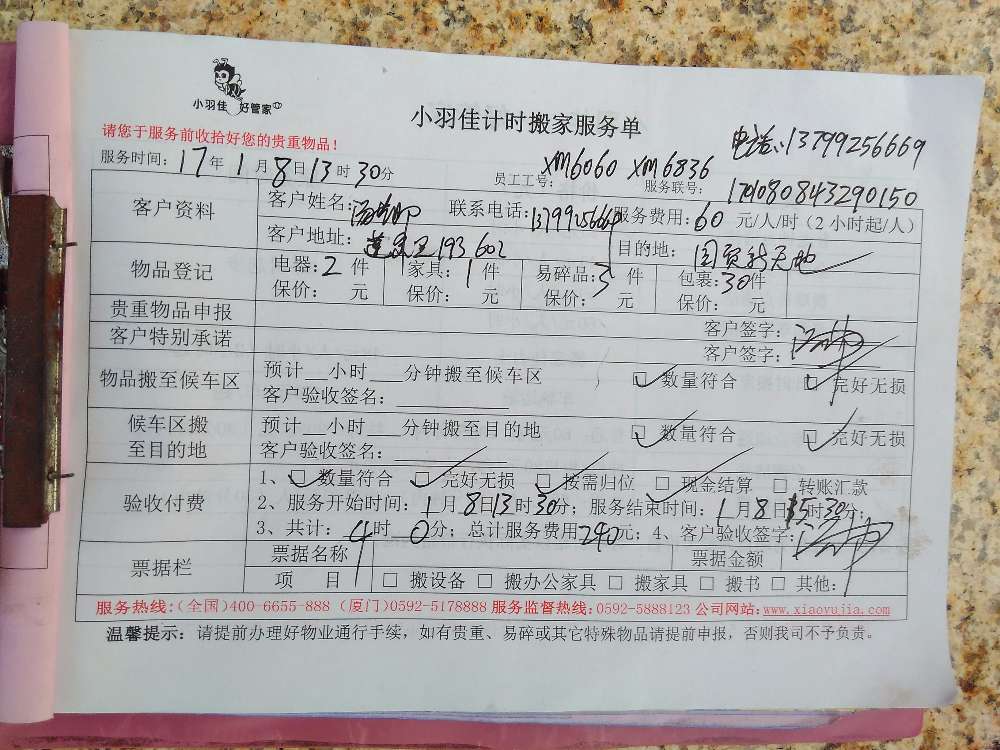 小羽佳 好管家
小羽佳计时搬家服务单
电话:13799256669
请您于服务前收拾好您的贵重物品!
服务时间:17年1月8日13时30分 员工工号:XM6060 XM6836 服务联号:
客户资料 客户姓名: 联系电话: 服务费用:60元/人/时(2小时起/人)
客户地址: 193 602 目的地:国贸新天地
物品登记 电器:2件 家具:1件 易碎品:3件 包裹:30件
保价: 元 保价: 元 保价: 元 保价: 元
贵重物品申报 客户签字:
客户特别承诺 客户签字:
物品搬至候车区 预计__小时___分钟搬至候车区 ☑数量符合 ☑完好无损
客户验收签名:
候车区搬至目的地 预计__小时___分钟搬至目的地 ☑数量符合 ☑完好无损
客户验收签名:
验收付费 1、☑数量符合 ☑完好无损 ☑按需归位 ☑现金结算 □转账汇款
2、服务开始时间:1月8日13时30分;服务结束时间:1月8日15时30分;
3、共计:4时0分;总计服务费用240元;4、客户验收签字:
票据栏 票据名称 票据金额
项 目 □搬设备 □搬办公家具 □搬家具 □搬书 □其他:
服务热线:(全国)400-6655-888 (厦门)0592-5178888 服务监督热线:0592-5888123 公司网站:www.xiaoyujia.com
温馨提示:请提前办理好物业通行手续,如有贵重、易碎或其它特殊物品请提前申报,否则我司不予负责。